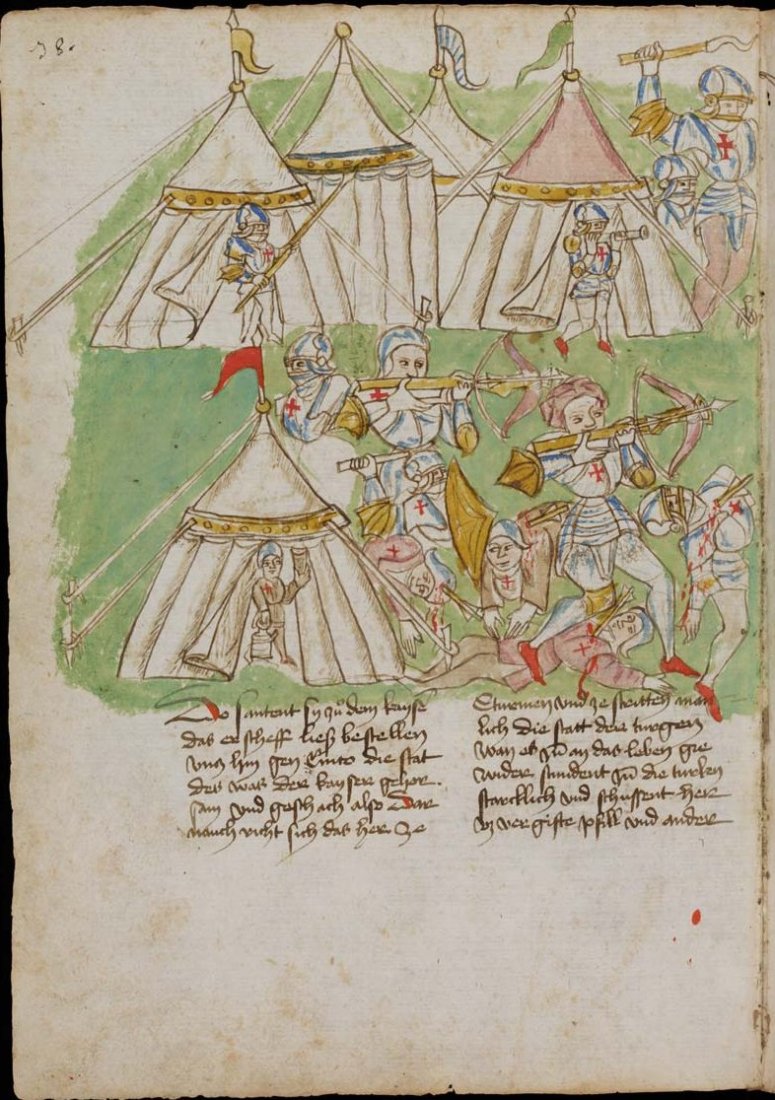 38.
Do santent sy zů dem kayser
das er scheff ließ bestellen
vntz hin gen Cinto die stat
des was der kayser gehor
sam vnd geschach also Dar
nauch richt sich das her ze
Sturmen vnd ze stritten man
lich die statt der turgen
wan es jn an das leben gie
wider stundent jn die turken
starcklich vnd schussent her
vz vergifte pfill vnd ander